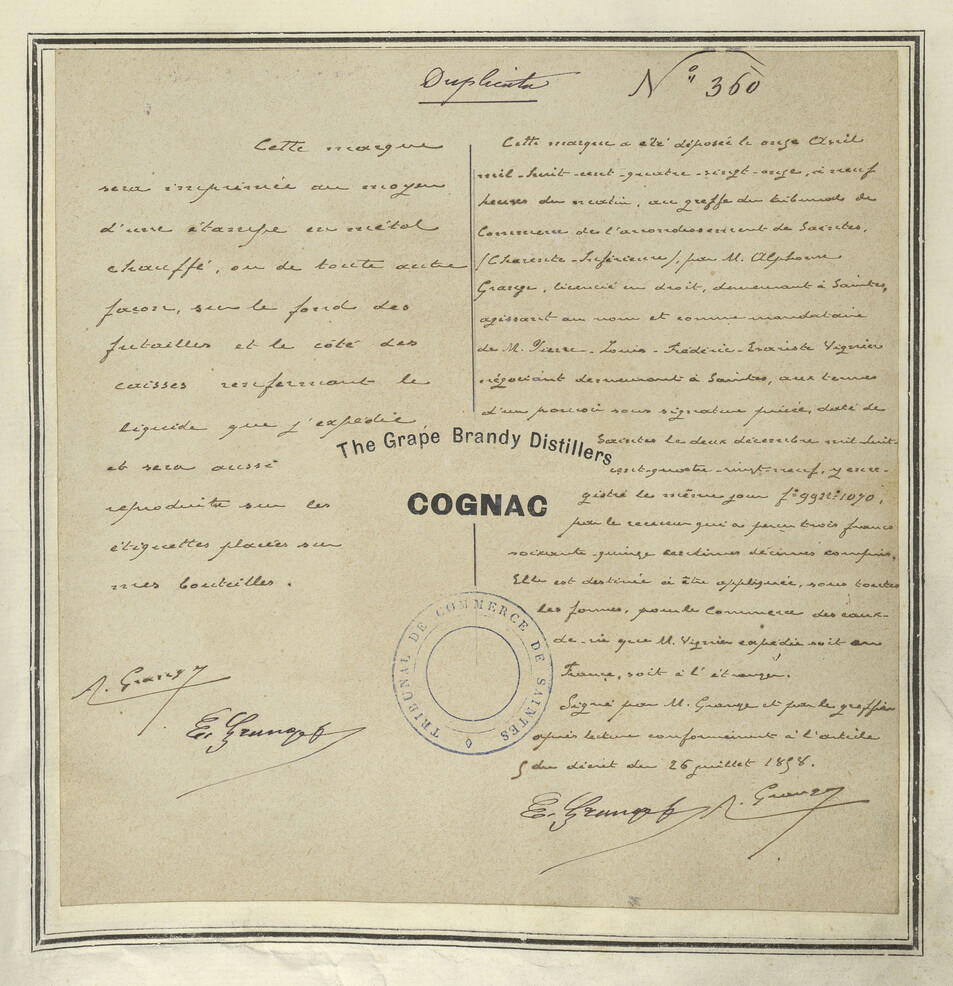 Duplicata
N° 360
Cette marque
sera imprimée au moyen
d'une étampe en métal
chauffé, ou de toute autre
façon, sur le fond des
futailles et le côté des
caisses renfermant le
liquide que j'expédie
et sera aussi
reproduite sur les
étiquettes placées sur
mes bouteilles.
A. Grange
Cette marque a été déposée le onze Avril
mil-huit-cent-quatre-vingt-onze, à neuf
heures du matin, au greffe du tribunal de
Commerce de l'arrondissement de Saintes,
(Charente-Inférieure), par M. Alphonse
Grange, licencié en droit, demeurant à Saintes,
agissant au nom et comme mandataire
de M. Pierre-Louis-Frédéric-Evariste Vignier
négociant demeurant à Saintes, aux termes
d'un pouvoir sous signature privée, daté de
Saintes le deux décembre mil huit-
cent-quatre-vingt-neuf, y enre-
gistré le même jour f° 99 n° 1070,
par le receveur qui a perçu trois francs
soixante-quinze centimes décimes compris.
Elle est destinée à être appliquée, sous toutes
les formes, pour le Commerce des eaux-
de-vie que M. Vignier expédie soit en
France, soit à l'étranger.
Signé par M. Grange et par le greffier
après lecture conformément à l'article
5 du décret du 26 juillet 1858.
A. Grange
The Grape Brandy Distillers
COGNAC
TRIBUNAL DE COMMERCE DE SAINTES